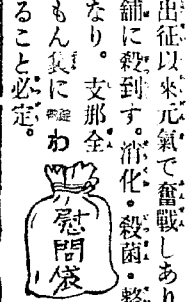 出征以來元氣で奮戰しあり
舖に殺到す。消化・殺菌・整
なり。支那全
もん袋にわ
ること必定。
慰問袋